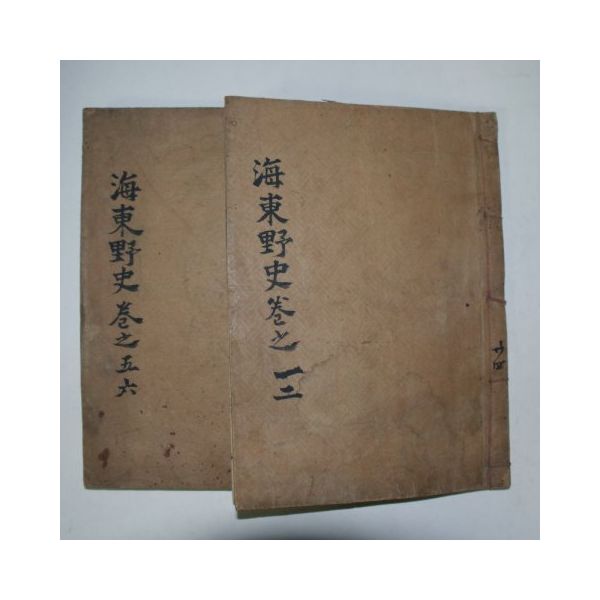 海東野史卷之一二
海東野史卷之五六